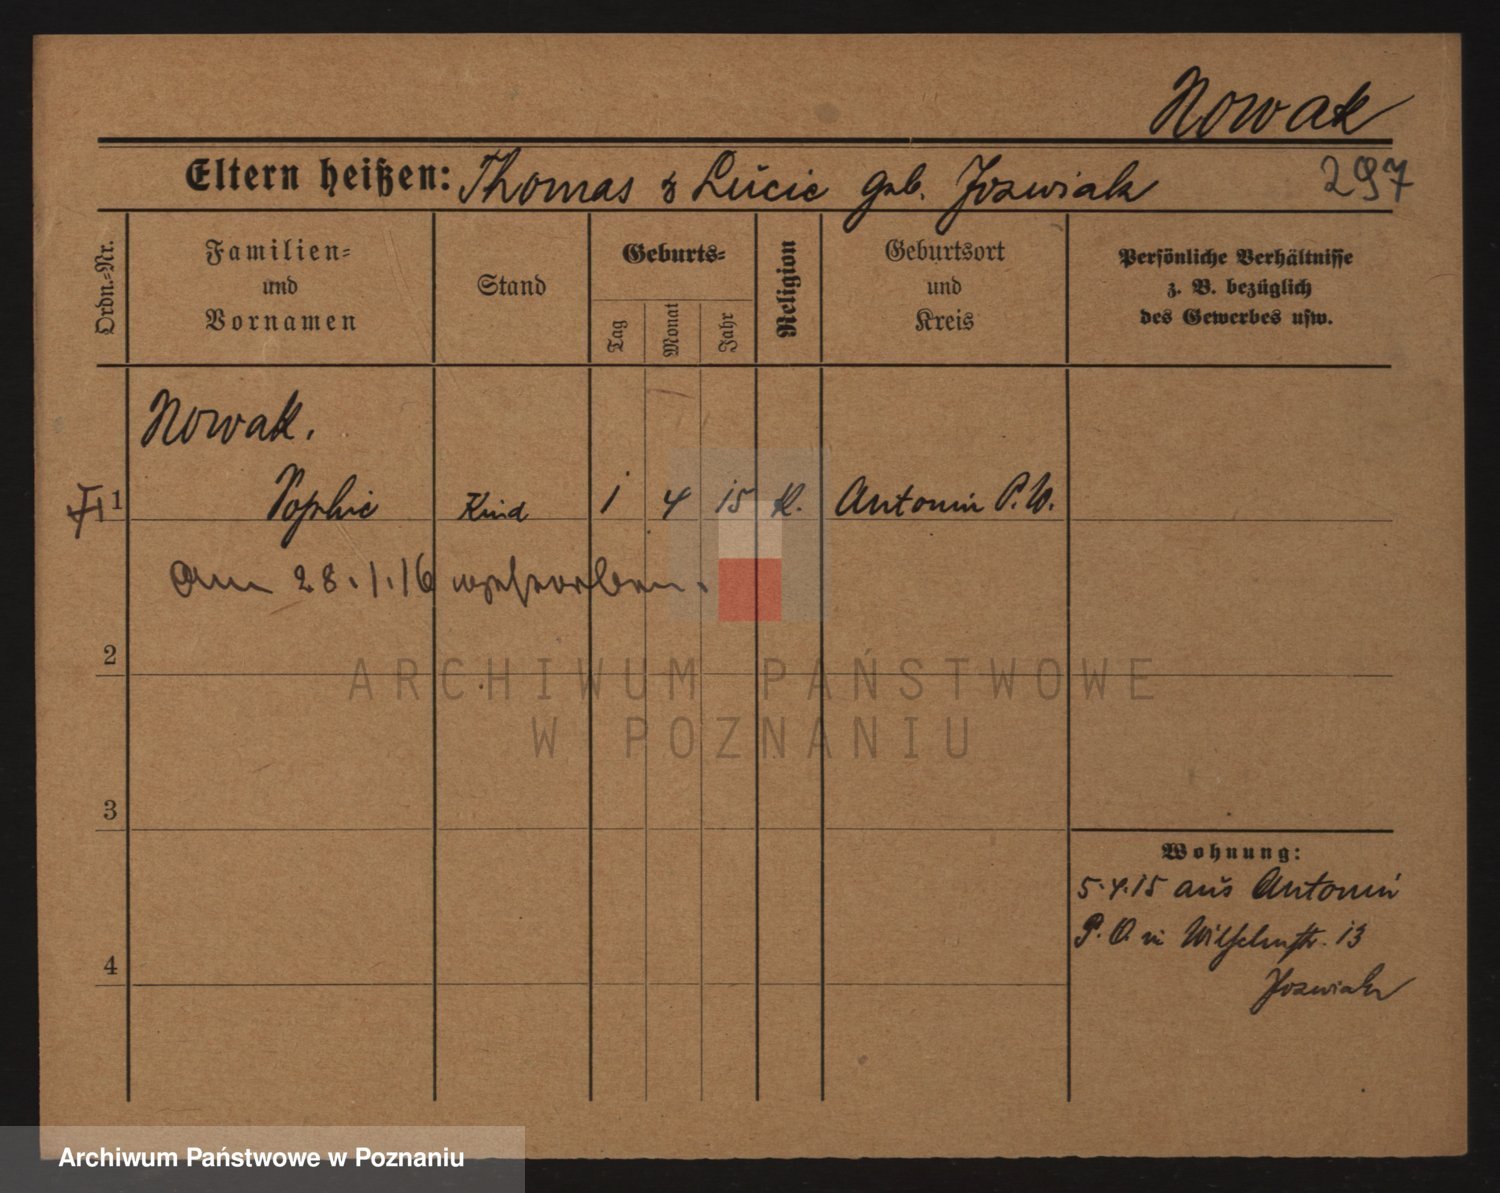 Nowak
Eltern heißen: Thomas & Lucie geb. Jozwiak
297
Ordn.-Nr.
Familien-
und
Vornamen
Stand
Geburts-
Tag
Monat
Jahr
Religion
Geburtsort
und
Kreis
Persönliche Verhältnisse
z. B. bezüglich
des Gewerbes usw.
Nowak.
1 Sophie Kind 1 4 15 K. Antonin P. W.
am 28.1.16 gestorben.
2
ARCHIWUM PAŃSTWOWE
W POZNANIU
3
Wohnung:
5.4.15 aus Antonin
P. O. in Wilhelmstr. 13
Jozwiak
4
Archiwum Państwowe w Poznaniu